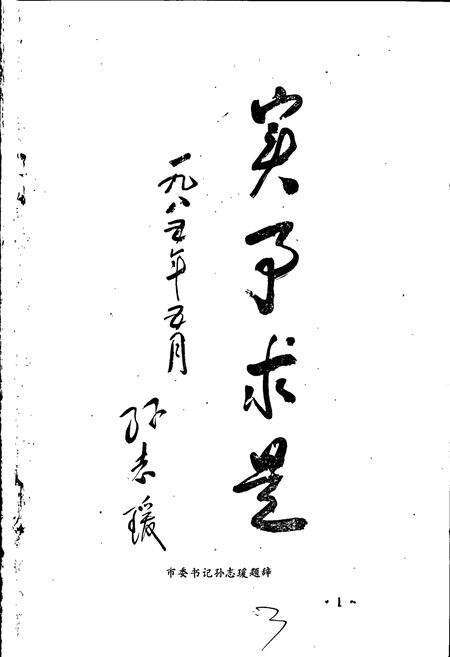 实事求是
一九八五年五月
孙志瑗
市委书记孙志瑗题辞
3
·1·